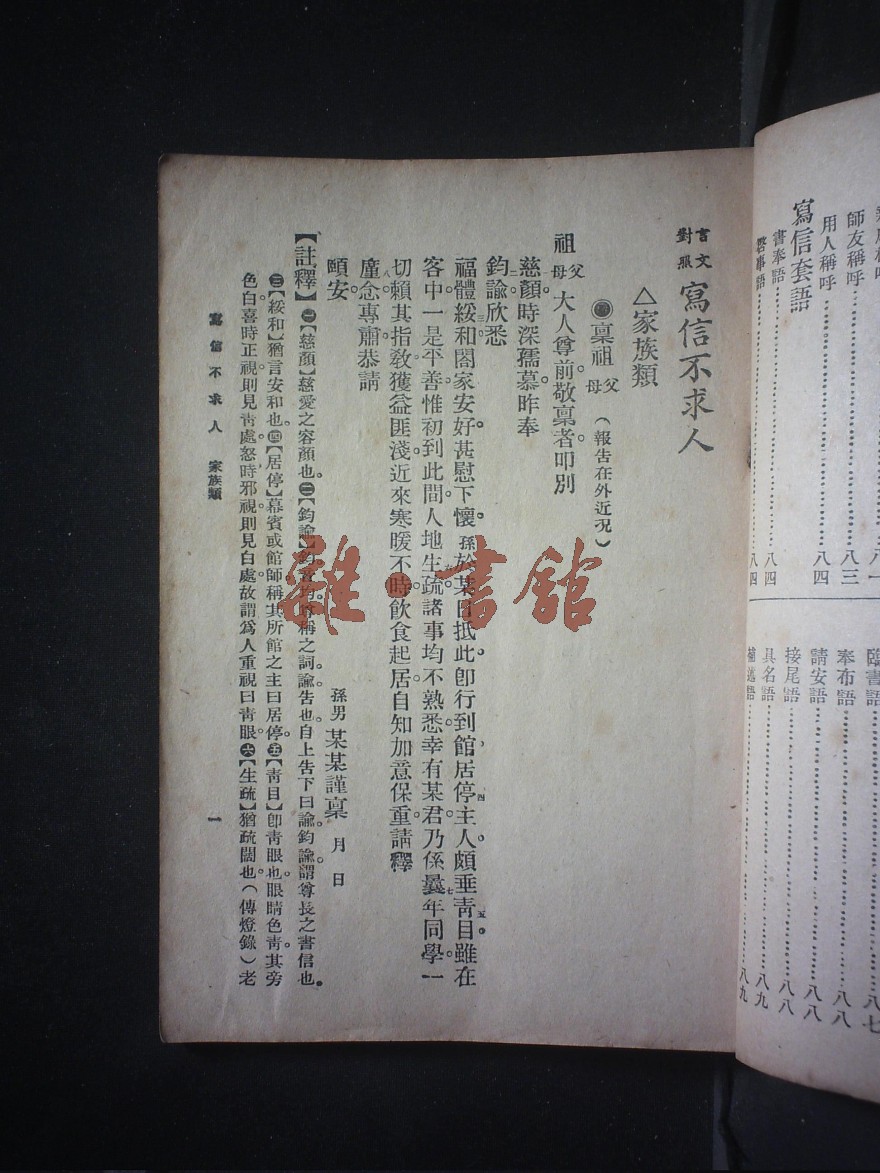 用人稱呼……八三
師友稱呼……八一
寫信套語……八四
書奉語……八四
臨書語……八七
奉布語……八八
請安語……八八
接尾語……八八
具名語……八九
補述語……八九
言文對照 寫信不求人
△家族類
●稟祖父母(報告在外近況)
祖父母大人尊前敬稟者叩別
慈顏時深孺慕昨奉
鈞諭欣悉
福體綏和閤家安好甚慰下懷孫於某日抵此卽行到館居停主人頗垂靑目雖在
客中一是平善惟初到此間人地生疏諸事均不熟悉幸有某君乃係曩年同學一
切賴其指敎獲益匪淺近來寒暖不時飮食起居自知加意保重請釋
廑念專肅恭請
頤安
孫男某某謹稟 月 日
【註釋】㊀【慈顏】慈愛之容顏也㊁【鈞諭】鈞者均尊稱之詞諭告也自上吿下曰諭鈞諭謂尊長之書信也
㊂【綏和】猶言安和也㊃【居停】幕賓或館師稱其所館之主曰居停㊄【靑目】卽靑眼也眼睛色靑其旁
色白喜時正視則見靑處怒時邪視則見白處故謂爲人重視曰靑眼㊅【生疏】猶疏闊也(傳燈錄)老
寫信不求人 家族類
一
雜·書館